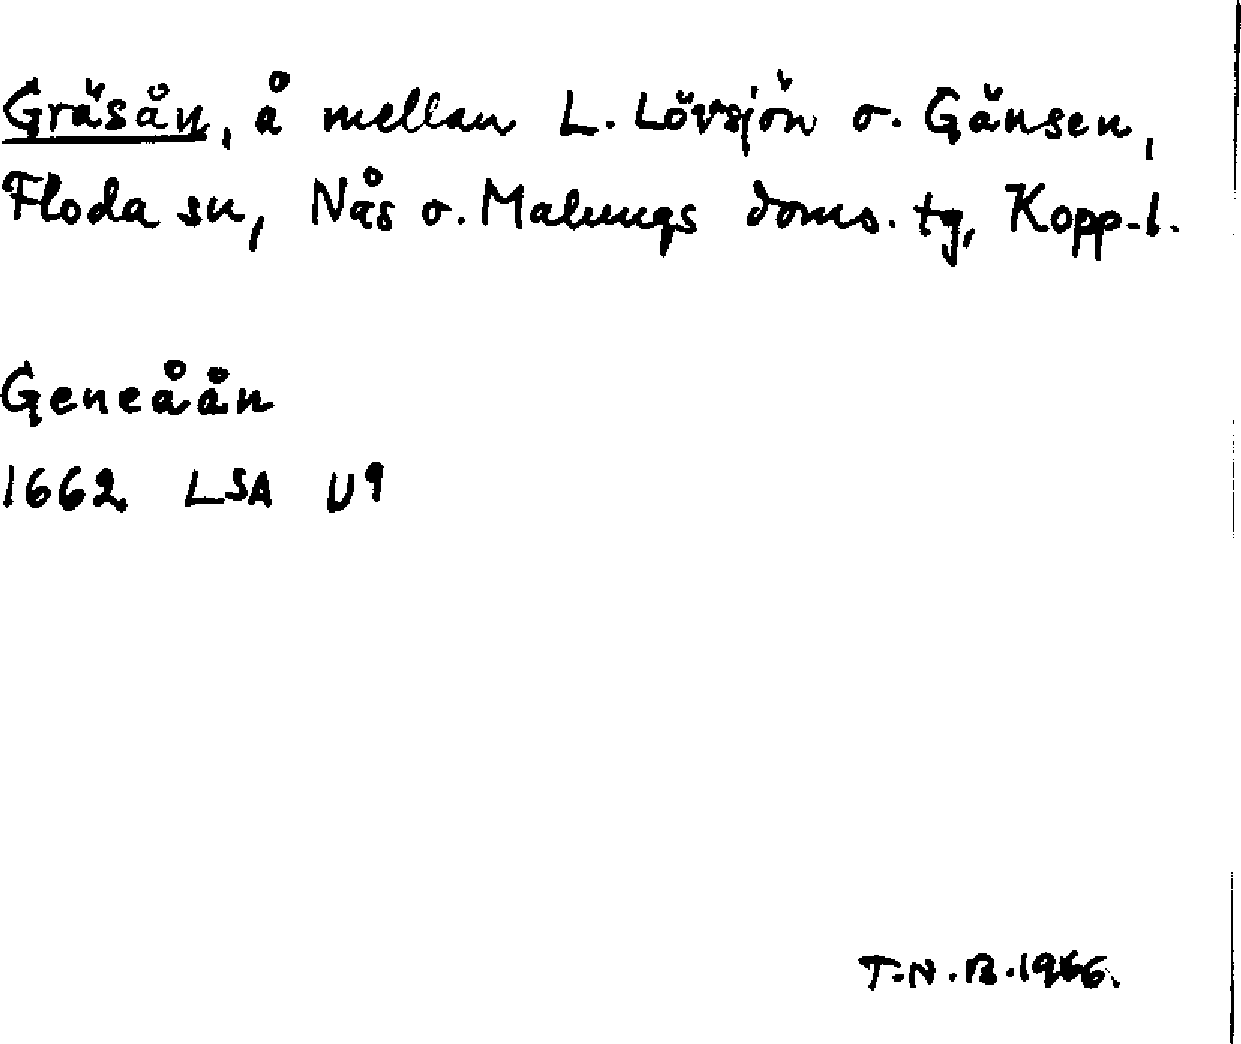 Gräsån, å mellan L. Lövsjön o. Gänsen,
Floda sn, Nås o. Malungs doms. tg, Kopp. l.
Geneåån
1662 LSA U9
T.N.B. 1966.